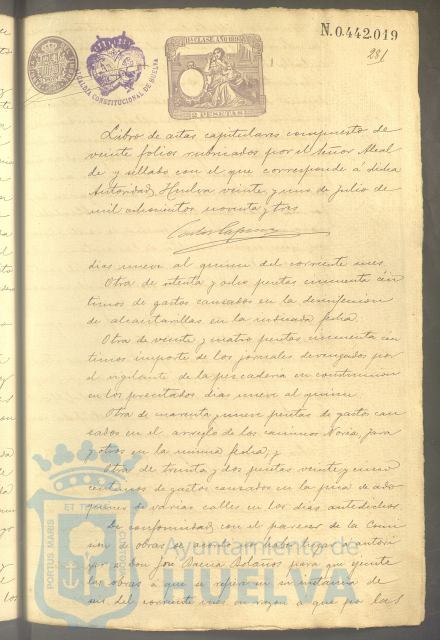 N.0.442.019
281
11ª CLASE AÑO 1893
2 PESETAS
ALCALDIA CONSTITUCIONAL DE HUELVA
Libro de actas capitulares compuesto de
veinte folios rubricados por el Señor Alcal
de y sellado con el que corresponde á dicha
Autoridad, Huelva veinte y uno de julio de
mil ochocientos noventa y tres
dias nueve al quince del corriente mes
Otra de setenta y ocho pesetas cincuenta cén
timos de gastos causados en la desinfeccion
de alcantarillas en la indicada fecha
Otra de veinte y cuatro pesetas cincuenta cén
timos importe de los jornales devengados por
el vigilante de la pescaderia en construccion
en los precitados dias nueve al quince.
Otra de cuarenta y nueve pesetas de gastos cau
sados en el arreglo de los caminos Noria,
y otros en la misma fecha, y
Otra de treinta y dos pesetas veinte y cinco
centimos de gastos causados en la de ado
quines de varias calles en los dias antedichos.
De conformidad con el parecer de la Comi
sion de obras se acordó por haber autori
zar a don José Baena Bolaños para que ejecute
las obras a que se refiere en su instancia de
del corriente mes en razon a que por las
ET TERRAE
PORTUS MARIS
CUSTODIA
Ayuntamiento de
HUELVA